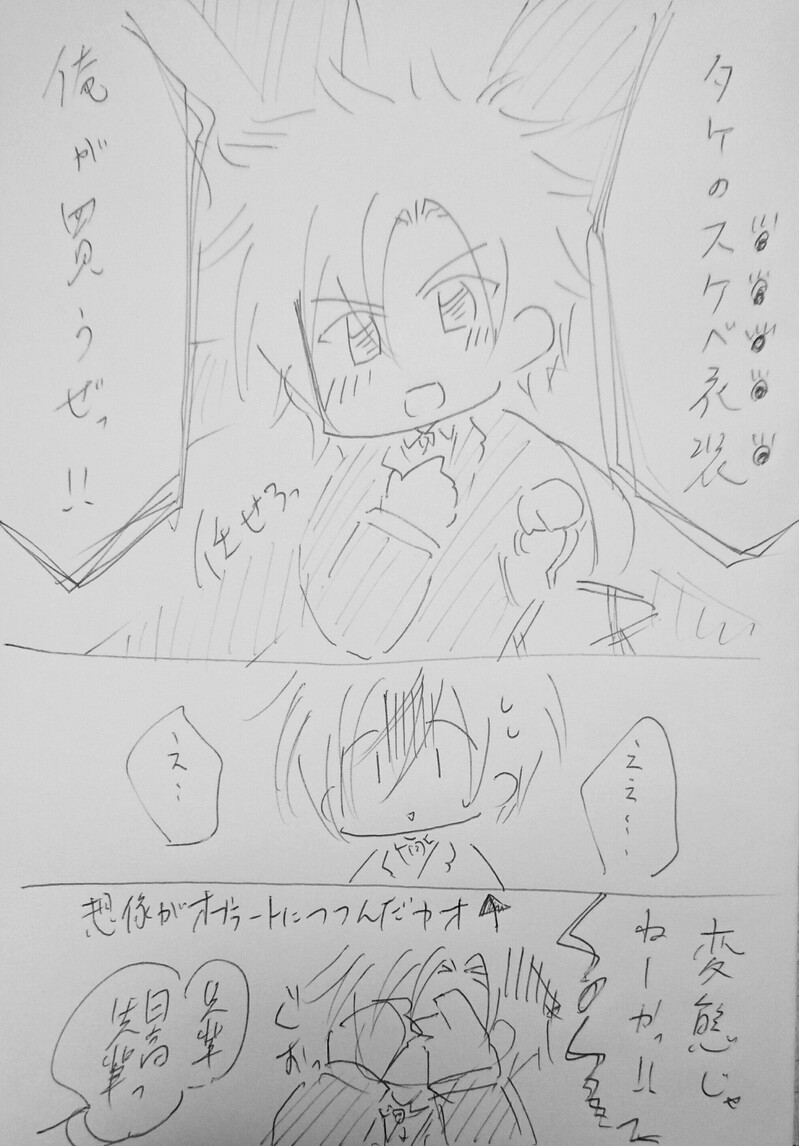 タケのスケベ衣装
俺が買うぜっ!!
任せろっ
ええ…
え…
想像がオブラートにつつんだカオ
変態じゃ
ねーかっ!!
ごおっ
先輩
日高
先輩っ